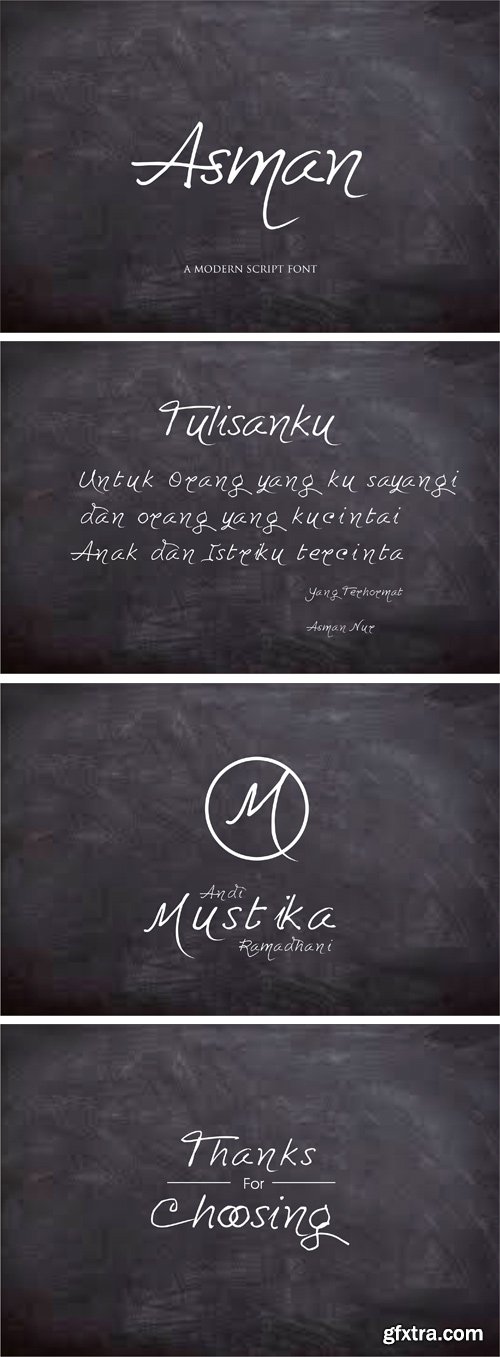 Asman
A MODERN SCRIPT FONT
Tulisanku
Untuk Orang yang ku sayangi
dan orang yang kucintai
Anak dan Istriku tercinta
Yang Terhormat
Asman Nur
M
Andi
Mustika
Ramadhani
Thanks
For
Choosing
gfxtra.com